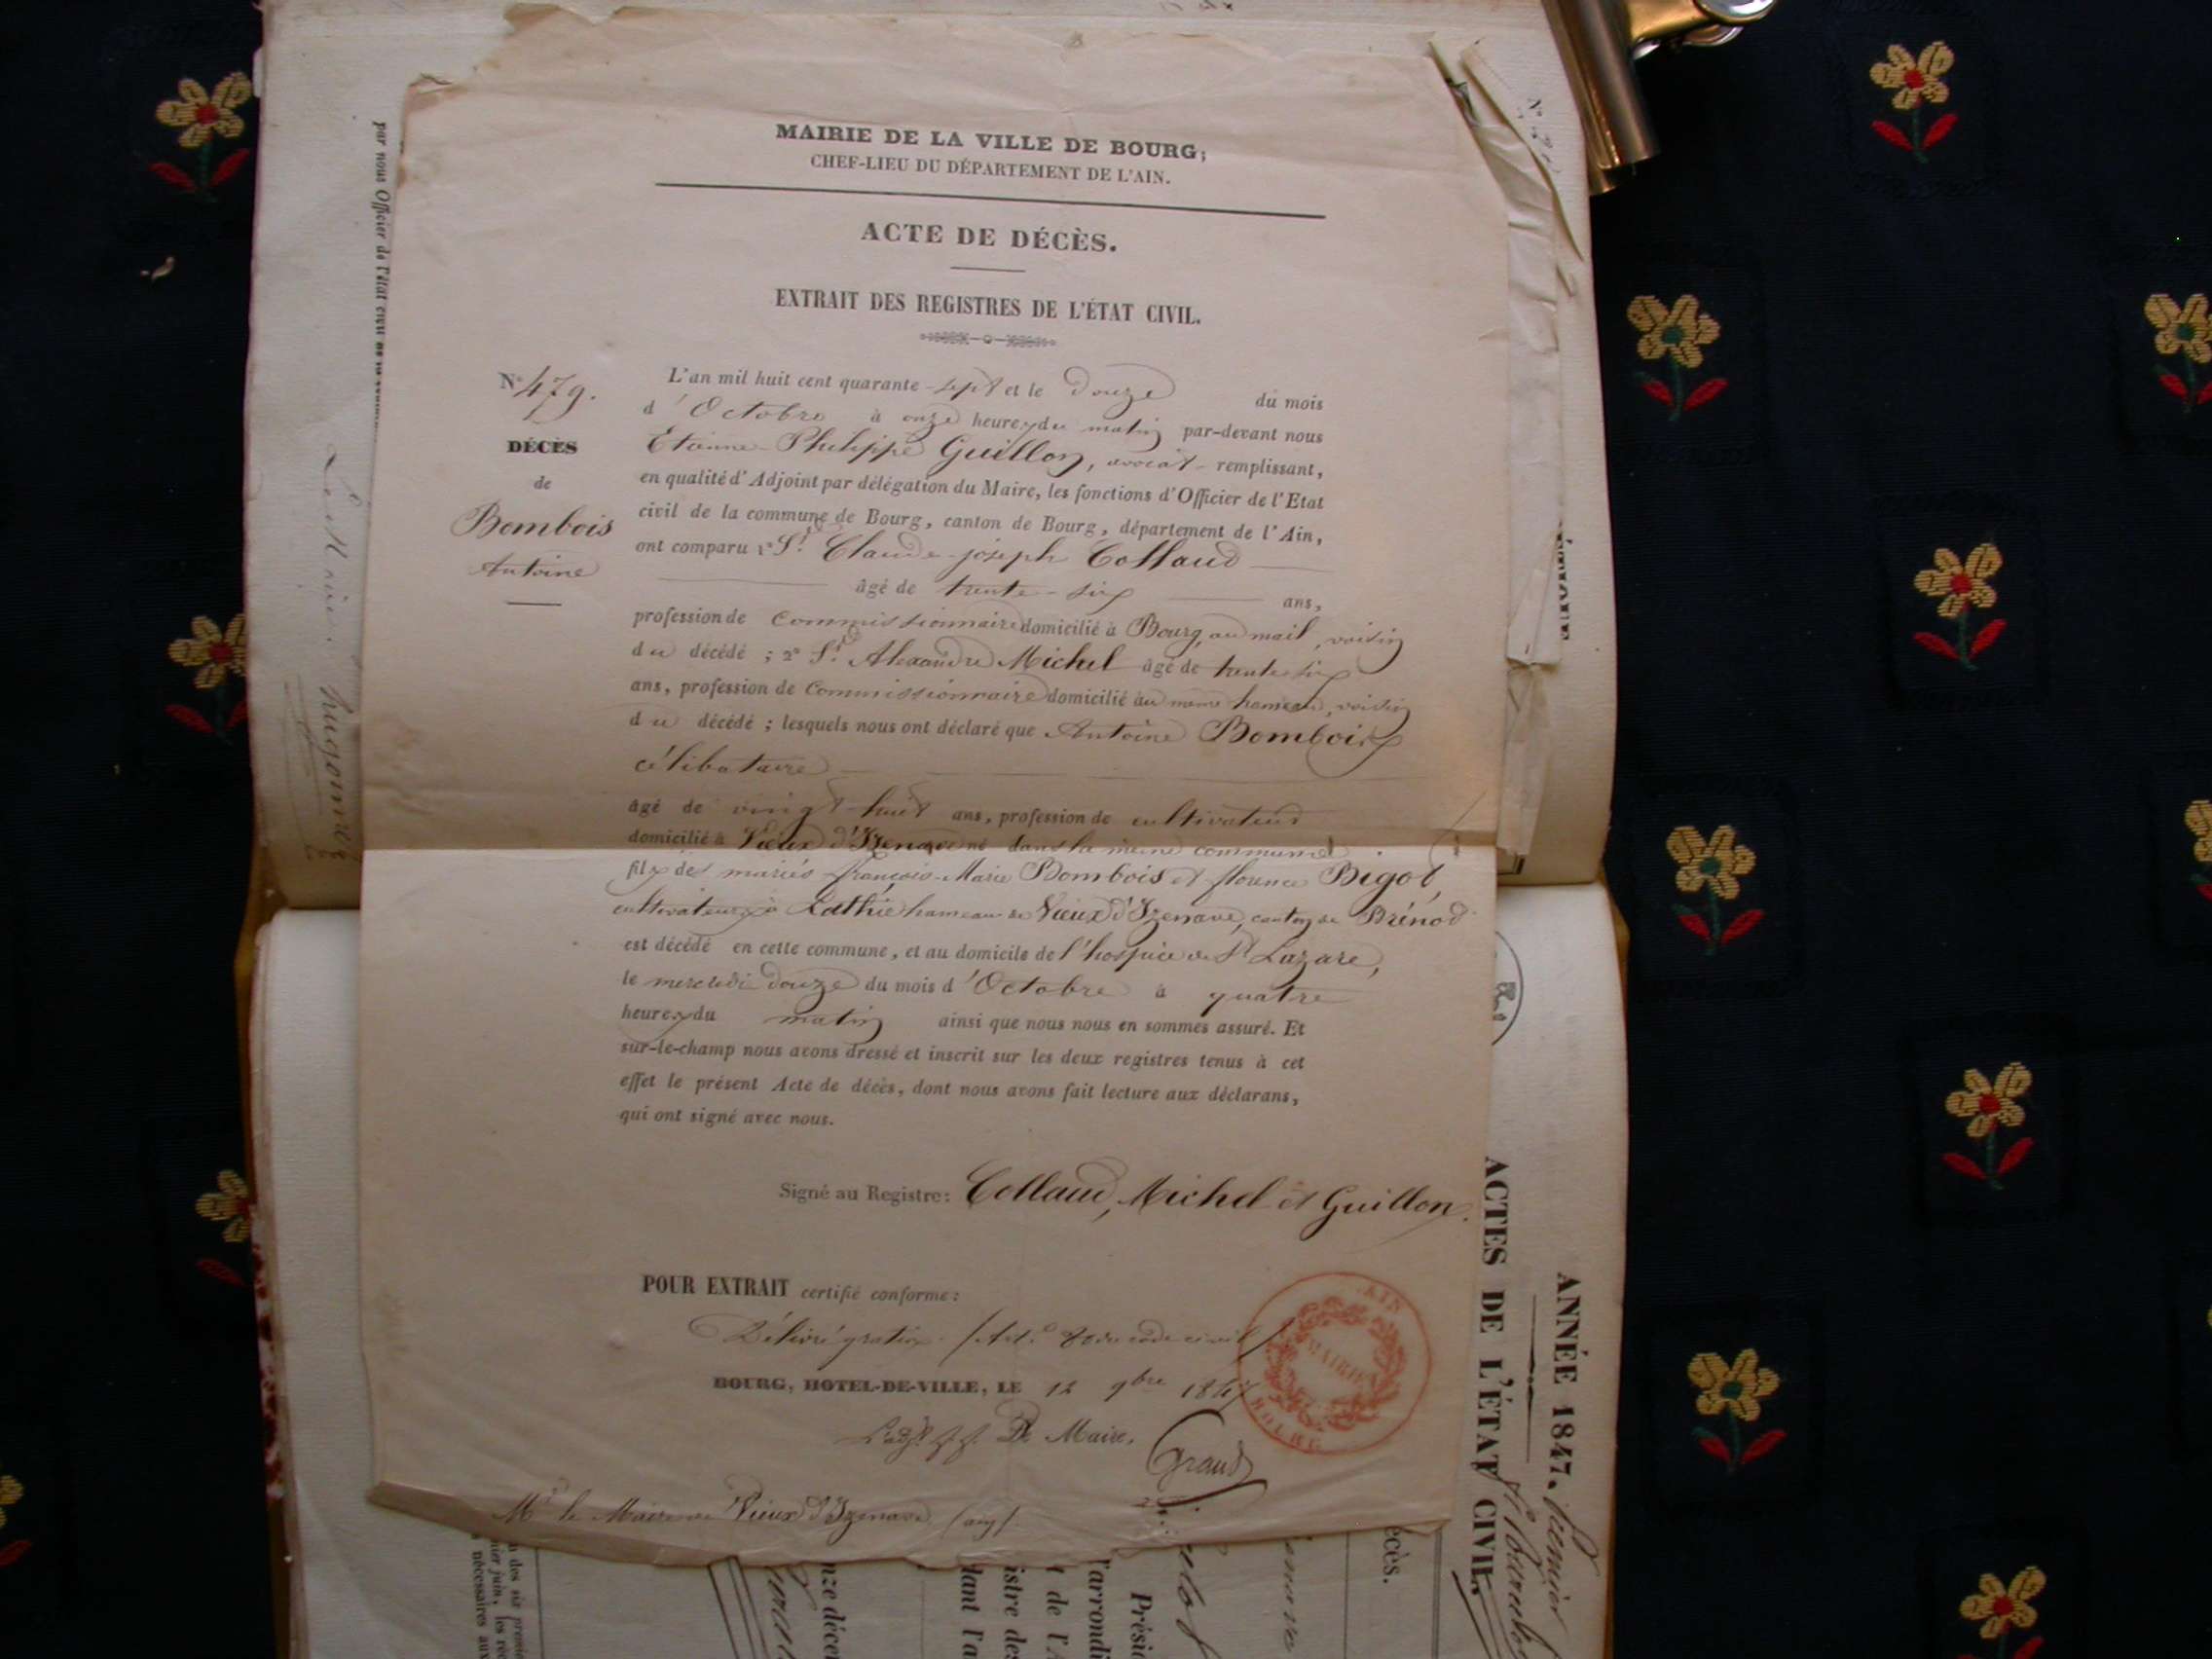 MAIRIE DE LA VILLE DE BOURG;
CHEF-LIEU DU DÉPARTEMENT DE L'AIN.
ACTE DE DÉCÈS.
EXTRAIT DES REGISTRES DE L'ÉTAT CIVIL.
N° 479.
DÉCÈS
de
Bombois
Antoine
L'an mil huit cent quarante-sept et le douze du mois
d'Octobre à onze heures du matin par-devant nous
Etienne-Philippe Guillon, avocat remplissant,
en qualité d'Adjoint par délégation du Maire, les fonctions d'Officier de l'Etat
civil de la commune de Bourg, canton de Bourg, département de l'Ain,
ont comparu 1° Sr. Claude-joseph Collaud
âgé de trente-six ans,
profession de Commissionnaire domicilié à Bourg, au mail, voisin
du décédé ; 2° Sr. Alexandre Michel âgé de trente six
ans, profession de Commissionnaire domicilié au même hameau, voisin
du décédé ; lesquels nous ont déclaré que Antoine Bombois
célibataire
âgé de vingt-huit ans, profession de cultivateur
domicilié à Vieux d'Izenave né dans la même commune
fils des mariés françois-Marie Bombois et florence Bigot,
cultivateurs à Lathie hameau de Vieux d'Izenave, canton de Brénod
est décédé en cette commune, et au domicile de l'hospice de St Lazare,
le mercredi douze du mois d'Octobre à quatre
heures du matin ainsi que nous nous en sommes assuré. Et
sur-le-champ nous avons dressé et inscrit sur les deux registres tenus à cet
effet le présent Acte de décès, dont nous avons fait lecture aux déclarans,
qui ont signé avec nous.
Signé au Registre: Collaud, Michel et Guillon.
POUR EXTRAIT certifié conforme:
Délivré gratis (Art. 80 du code civil)
BOURG, HOTEL-DE-VILLE, LE 12 9bre 1847
L'adjt. f.f. De Maire.
AIN
MAIRIE
BOURG
Mr le Maire de Vieux d'Izenave (ain).
par nous Officier de l'état civil
ANNÉE 1847.
ACTES DE L'ÉTAT CIVIL
écès.
Présid
l'arrondi
de l'A
istre des
dant l'a
nze décem
n des six premie
nier juin, les
nécessaires aux